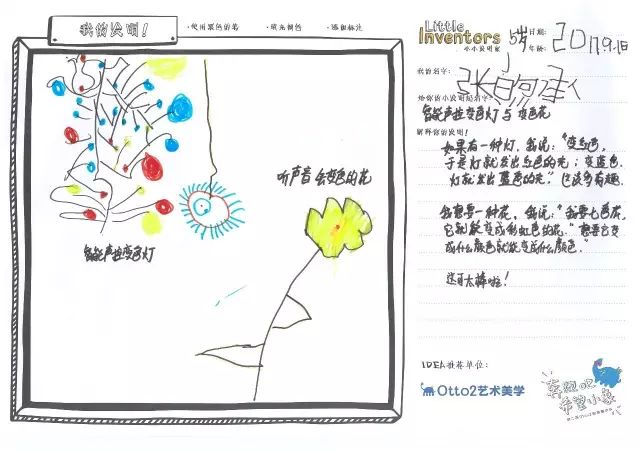 我的发明!
·使用黑色的笔 ·填充颜色 ·添加标注
Little
Inventors
小小发明家
5岁
日期:
年龄:
2017.9.18
我的名字:
给你的小发明起名字:
智能声控变色灯与变色花
解释你的发明!
如果有一种灯,我说:“变红色,
于是灯就发出红色的光;变蓝色,
灯就发出蓝色的光”应该多有趣.
我想要一种花,我说:“我要七色花,
它就能变成彩虹色的花.”想要它变
成什么颜色就能变成什么颜色.”
这可太棒啦!
听声音会变色的花
智能声控变色灯
IDEA推荐单位:
Otto2艺术美学
奔跑吧
希望小象